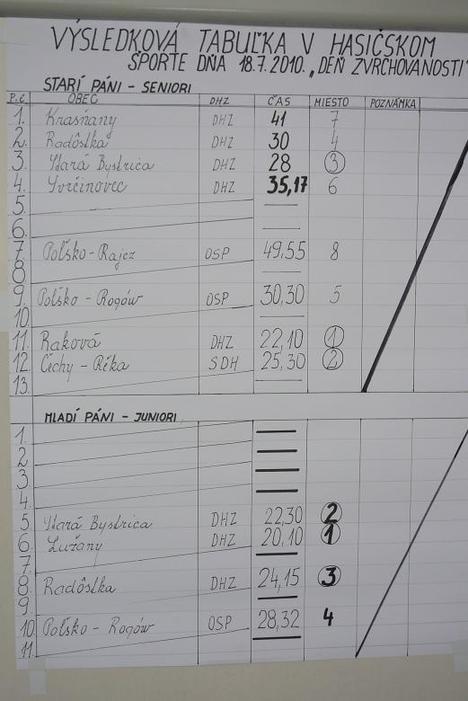 VÝSLEDKOVÁ TABUĽKA V HASIČSKOM
ŠPORTE DŇA 18.7.2010. „DEŇ ZVRCHOVANOSTI"
STARÍ PÁNI - SENIORI
P.č. OBEC DHZ ČAS MIESTO POZNÁMKA
1. Krasňany DHZ 41 7
2. Radôstka DHZ 30 4
3. Stará Bystrica DHZ 28 3
4. Svrčinovec DHZ 35,17 6
5.
6.
7. Poľsko-Rajcz OSP 49.55 8
8.
9. Poľsko - Rogów OSP 30,30 5
10.
11. Raková DHZ 22,10 1
12. Čichy - Réka SDH 25,30 2
13.
MLADÍ PÁNI - JUNIORI
1.
2
3
4.
5 Stará Bystrica DHZ 22,30 2
6. Lužany DHZ 20,10 1
7.
8. Radôstka DHZ 24,15 3
9.
10. Poľsko - Rogów OSP 28,32 4
11.